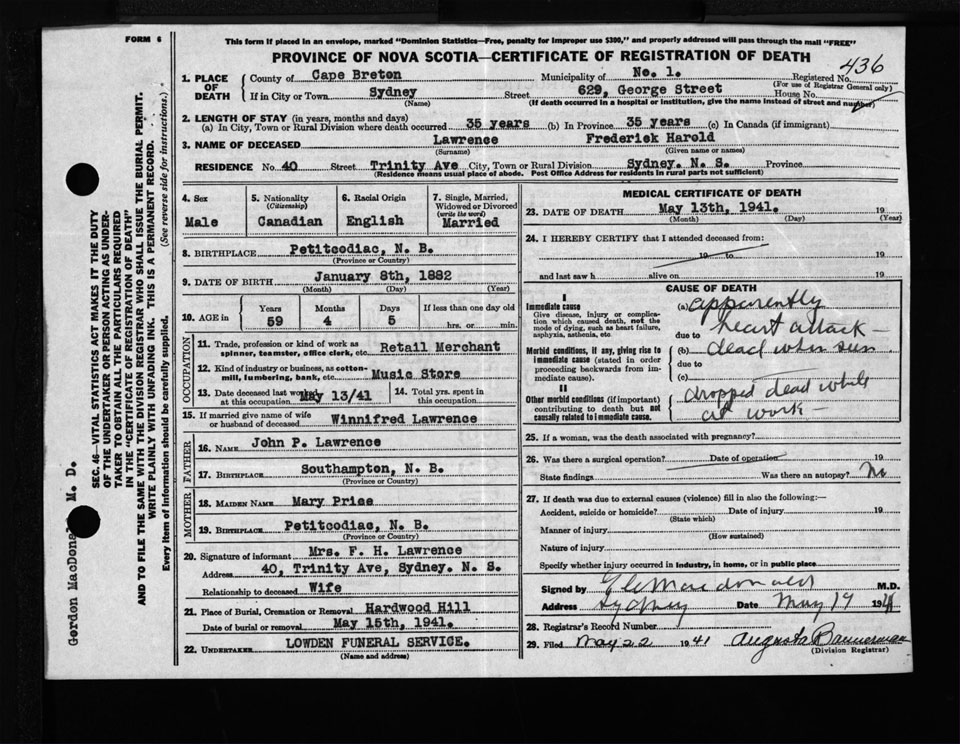 FORM 6
This form if placed in an envelope, marked "Dominion Statistics—Free, penalty for improper use $300," and properly addressed will pass through the mail "FREE"
PROVINCE OF NOVA SCOTIA—CERTIFICATE OF REGISTRATION OF DEATH
436
1. PLACE OF DEATH
County of Cape Breton Municipality of No. 1. Registered No.
(For use of Registrar General only)
If in City or Town Sydney Street 629, George Street House No.
(Name) (If death occurred in a hospital or institution, give the name instead of street and number)
2. LENGTH OF STAY (in years, months and days)
(a) In City, Town or Rural Division where death occurred 35 years (b) In Province 35 years (c) In Canada (if immigrant)
3. NAME OF DECEASED Lawrence Frederick Harold
(Surname) (Given name or names)
RESIDENCE No. 40 Street Trinity Ave City, Town or Rural Division Sydney. N. S. Province
(Residence means usual place of abode. Post Office Address for residents in rural parts not sufficient)
4. Sex
Male
5. Nationality
(Citizenship)
Canadian
6. Racial Origin
English
7. Single, Married, Widowed or Divorced
(write the word)
Married
8. BIRTHPLACE Petitcodiac, N. B.
(Province or Country)
9. DATE OF BIRTH January 8th, 1882
(Month) (Day) (Year)
10. AGE in
Years Months Days If less than one day old
59 4 5 hrs. or min.
OCCUPATION
11. Trade, profession or kind of work as spinner, teamster, office clerk, etc Retail Merchant
12. Kind of industry or business, as cotton-mill, lumbering, bank, etc Music Store
13. Date deceased last worked at this occupation May 13/41
14. Total yrs. spent in this occupation
15. If married give name of wife or husband of deceased Winnifred Lawrence
FATHER
16. NAME John P. Lawrence
17. BIRTHPLACE Southampton, N. B.
(Province or Country)
MOTHER
18. MAIDEN NAME Mary Price
19. BIRTHPLACE Petitcodiac, N. B.
(Province or Country)
20. Signature of informant Mrs. F. H. Lawrence
Address 40, Trinity Ave, Sydney. N. S.
Relationship to deceased Wife
21. Place of Burial, Cremation or Removal Hardwood Hill
Date of burial or removal May 15th, 1941.
22. UNDERTAKER LOWDEN FUNERAL SERVICE.
(Name and address)
MEDICAL CERTIFICATE OF DEATH
23. DATE OF DEATH May 13th, 1941. 19
(Month) (Day) (Year)
24. I HEREBY CERTIFY that I attended deceased from:
19 to 19
and last saw h alive on 19
CAUSE OF DEATH
I
Immediate cause
Give disease, injury or complication which caused death, not the mode of dying, such as heart failure, asphyxia, asthenia, etc.
(a) apparently
due to heart attack—
Morbid conditions, if any, giving rise to immediate cause (stated in order proceeding backwards from immediate cause).
(b) dead when seen
due to
(c)
II
Other morbid conditions (if important) contributing to death but not causally related to immediate cause.
dropped dead while
at work—
25. If a woman, was the death associated with pregnancy?
26. Was there a surgical operation? Date of operation
State findings Was there an autopsy? No
27. If death was due to external causes (violence) fill in also the following:—
Accident, suicide or homicide? Date of injury 19
(State which)
Manner of injury
(How sustained)
Nature of injury
Specify whether injury occurred in industry, in home, or in public place
Signed by Macdonald M.D.
Address Sydney Date May 19 1941
28. Registrar's Record Number
29. Filed May 22 1941 Augusta Bannerman
(Division Registrar)
SEC. 46—VITAL STATISTICS ACT MAKES IT THE DUTY
OF THE UNDERTAKER OR PERSON ACTING AS UNDER-
TAKER TO OBTAIN ALL THE PARTICULARS REQUIRED
IN THE "CERTIFICATE OF REGISTRATION OF DEATH"
AND TO FILE THE SAME WITH THE DIVISION REGISTRAR WHO SHALL ISSUE THE BURIAL PERMIT.
WRITE PLAINLY WITH UNFADING INK. THIS IS A PERMANENT RECORD.
Every item of information should be carefully supplied. (See reverse side for instructions.)
Gordon MacDonal M. D.